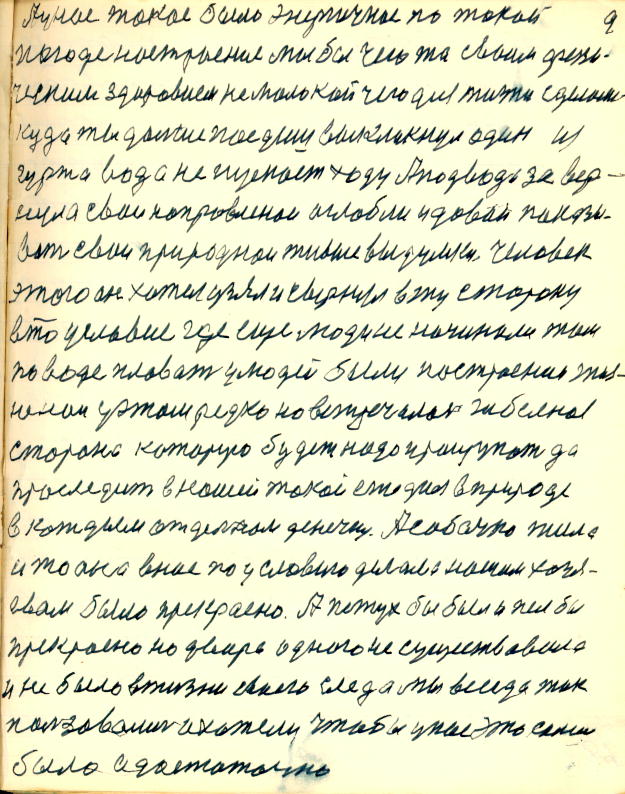 А у нас такое было энергичное по такой 9
погоде настроение мы бы чего та своим физи-
ческим здоровием не малой чего для жизни сделали
куда ты дальше поедиш выкликнул один из
гурта вода не пускает ходу А подводы завер-
нула свои направление оглобли и давай показы-
вать свои природнаи выдумки. Человек
этого он хотел взял и свернул в эту сторону
в то условие где еще люди не начинали там
по воде плавать у людей были построение
в этом редко но встречалас гибелная
сторона которую будет надо прощупат да
проследит в нашей такой сегодня в природе
в каждым отделном денечку. А собачка жила
и то она в нас по условию делала нашим хозя-
евам было прекрасно. А петух бы был а пел бы
прекрасно но двара одного не существовала
и не было в жизни своего следа мы всегда так
ползовалис и хатели чтобы у нас это самое
было и достаточно